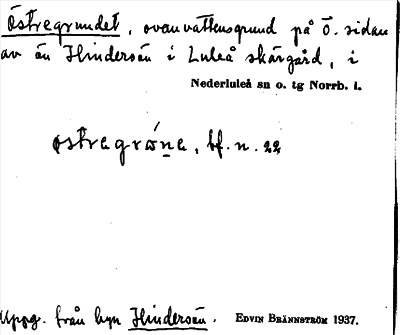 Östregrundet, ovanvattensgrund på ö. sidan
av ön Hindersön i Luleå skärgård, i
Nederluleå sn o. tg Norrb. l.
østragrώ̱na, bf. n. 22
Uppg. från byn Hindersön. EDVIN BRÄNNSTRÖM 1937.